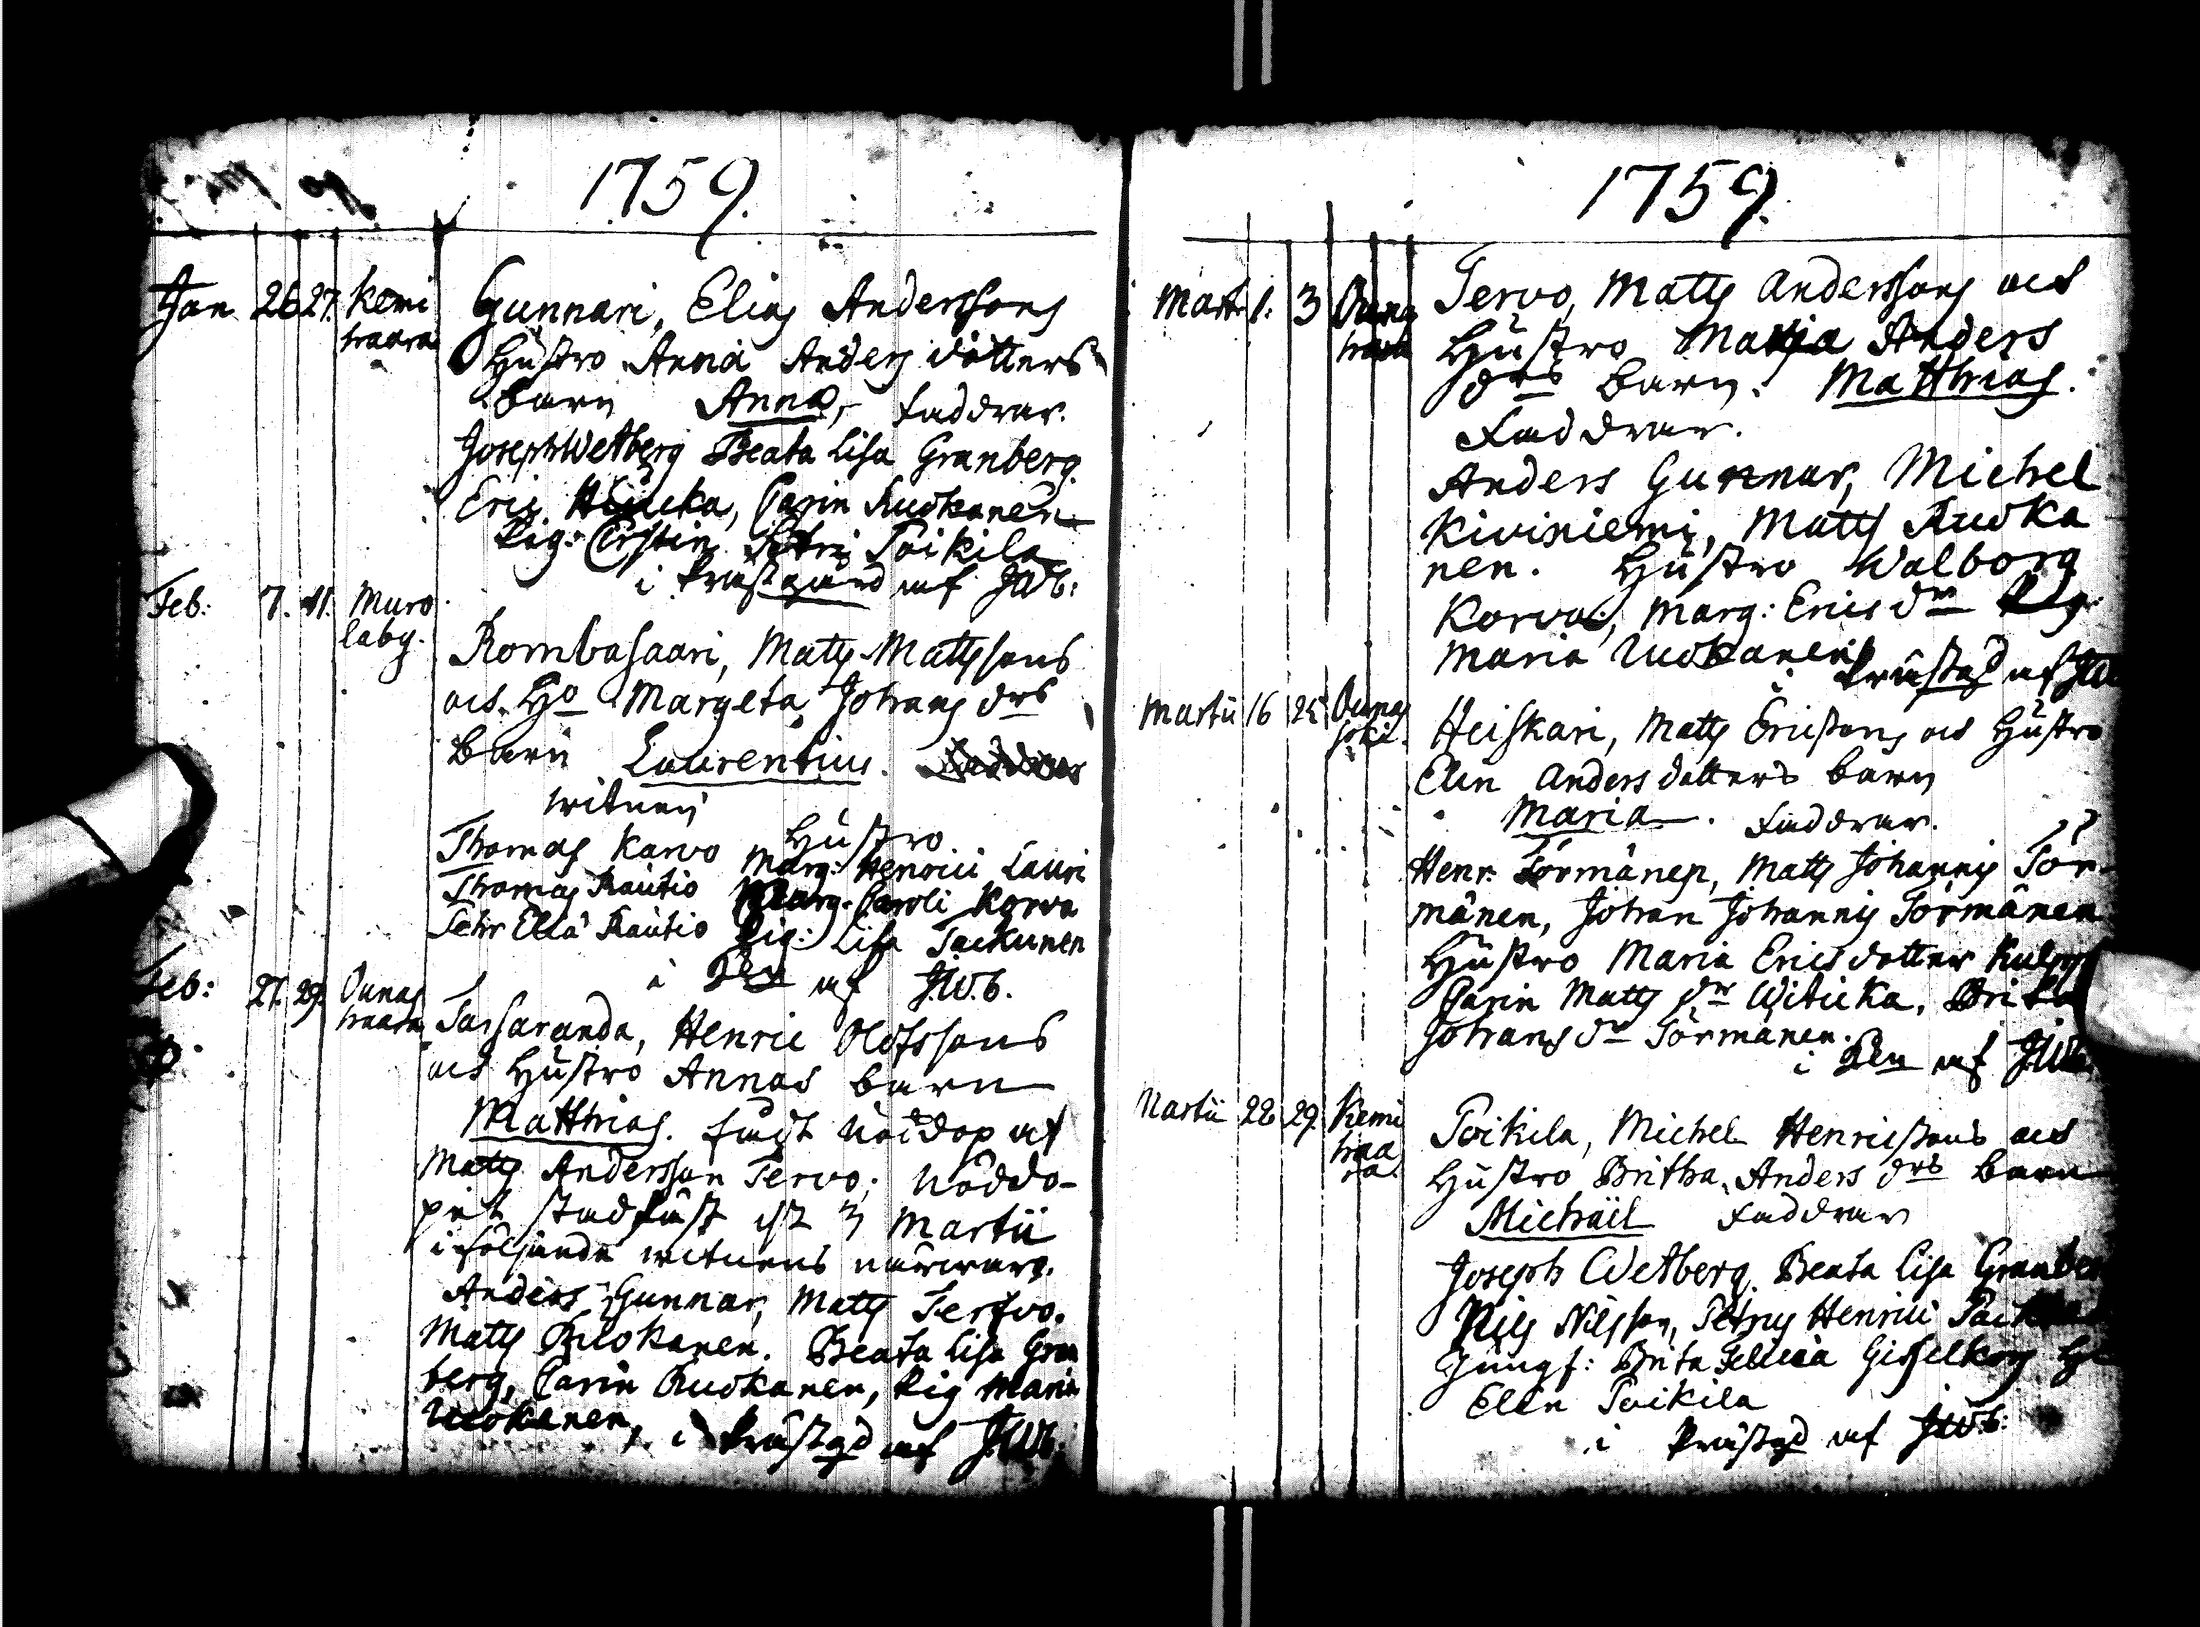 1759.
Jan 26 27. Kemi Gunnari, Elias Anderssons
haara Hustro Anna Anders dotters
barn Anna, faddrar.
Joseph Wetberg Beata Lisa Granberg
Eric Carin Ruokanen
Pig: Cerstin Petri Poikila
i Prästgård af JWb:
Feb: 7. 11. Muro
laby. Rombasaari, Matts Mattssons
och Ho Margeta Johans drs
barn Laurentius. Faddrar
witnen
Thomas Karvo Hustro
Marg: Henrici Lauri
Thomas Rautio Marg. Caroli Korva
Pehr Ella Rautio Pig: Lisa Packunen
i af J.W.b.
Feb: 27. 29. Ounas
haara Tarsaranda, Henric Olofssons
och Hustro Annas barn
Matthias. fadt nöddop af
Matts Andersson Tervo; Nöddo-
pet stadfäst d. 3 Martii
i följande witnens närwaro.
Anders Gunnar, Matts Tervo.
Matts Ruokanen. Beata Lisa Gran
berg, Carin Ruokanen, Pig Maria
Uuokanen, i Prästgd af J.Wb.
1759.
Mart. 1. 3 Ounas Tervo, Matts Anderssons och
haara Hustro Maria Anders
drs barn. Matthias.
Faddrar.
Anders Gunnar, Michel
Kiviniemi, Matts Ruoka
nen. Hustro Walborg
Korva, Marg: Erics dr Pig:
Maria Uuokanen
i Prästgd af JW
Martii 16 25 Ounas
joki. Heiskari, Matts Ericssons och Hustro
Elin Anders dotters barn
Maria. Faddrar.
Henr. Törmänen, Matts Johannis Tör-
mänen, Johan Johannis Törmänen
Hustro Maria Erics dotter
Carin Matts dr Witicka, Brita
Johans dr Törmänen.
i af JWb.
Martii 22 29. Kemi
haa
ra. Poikila, Michel Henricssons och
Hustro Britha Anders drs barn
Michäel Faddrar
Joseph Wetberg, Beata Lisa Granber
Nils Nilsson, Petrus Henrici
Jungf: Brita Gisselkors
Elin Poikila
i Prästgd af JWb: